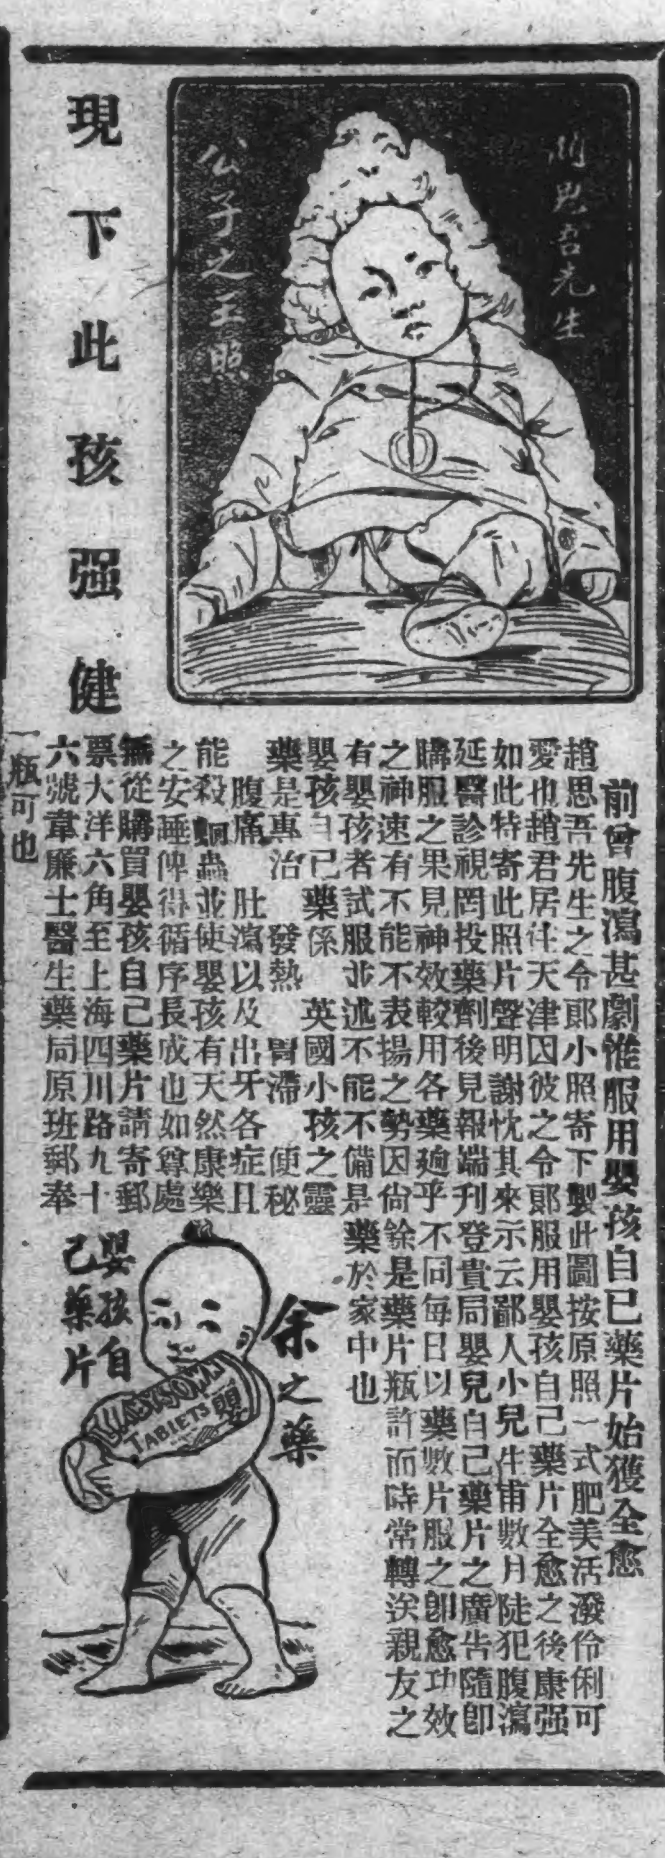 現下此孩强健
趙思吾先生
公子之玉照
前曾腹瀉甚劇惟服用嬰孩自己藥片始獲全愈
趙思吾先生之令郎小照寄下製此圖按原照一式肥美活潑伶俐可
愛也趙君居住天津因彼之令郎服用嬰孩自己藥片全愈之後康强
如此特寄此照片聲明謝忱其來示云鄙人小兒生甫數月陡犯腹瀉
延醫診視罔投藥劑後見報端刊登貴局嬰兒自己藥片之廣告隨卽
購服之果見神效較用各藥迥乎不同每日以藥數片服之卽愈功效
之神速有不能不表揚之勢因尙餘是藥片瓶許而時常轉送親友之
有嬰孩者試服並述不能不備是藥於家中也
嬰孩自己藥係 英國小孩之靈
藥是專治 發熱 胃滯 便秘
腹痛 肚瀉以及出牙各症且
能殺蛔蟲並使嬰孩有天然康樂
之安睡俾得循序長成也如尊處
無從購買嬰孩自己藥片請寄郵
票大洋六角至上海四川路九十
六號韋廉士醫生藥局原班郵奉
一瓶可也
余之藥
嬰孩自
己藥片
TABLETS
嬰